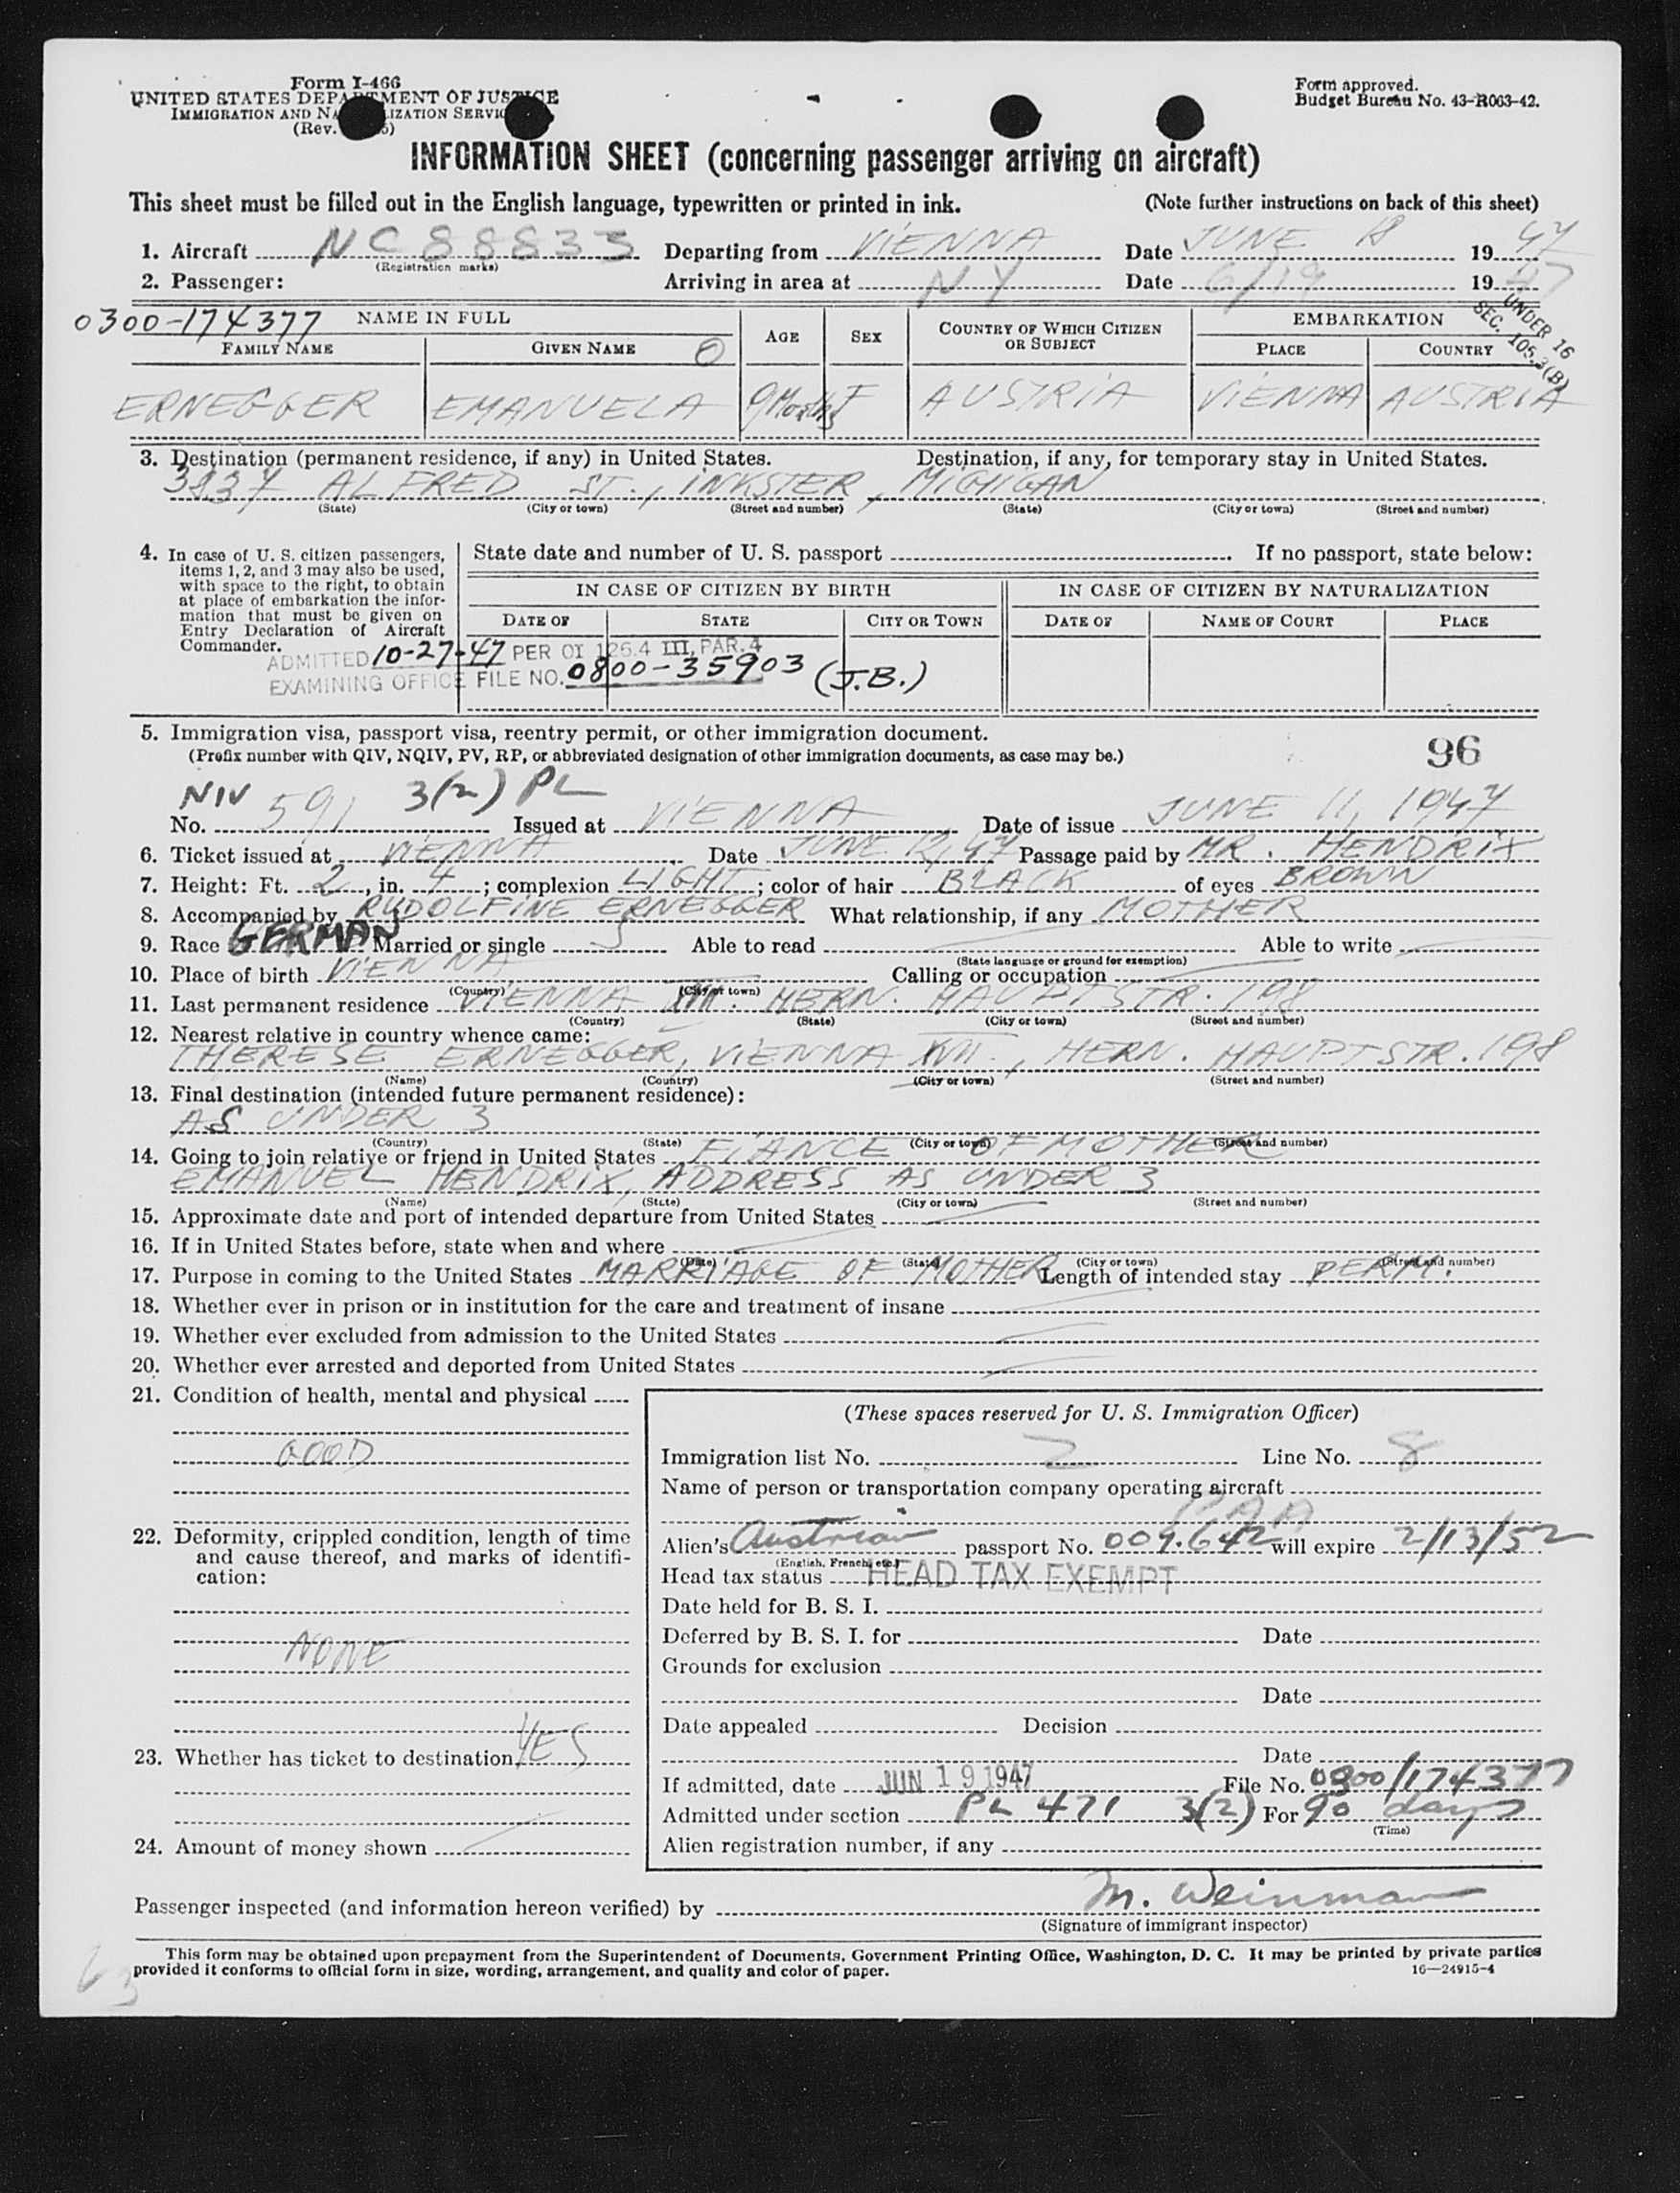 Form I-466
UNITED STATES DEPARTMENT OF JUSTICE
IMMIGRATION AND NATURALIZATION SERVICE
(Rev.
Form approved.
Budget Bureau No. 43-R063-42.
INFORMATION SHEET (concerning passenger arriving on aircraft)
This sheet must be filled out in the English language, typewritten or printed in ink. (Note further instructions on back of this sheet)
1. Aircraft NC 88833 Departing from VIENNA Date JUNE 18 1947
(Registration marks)
2. Passenger: Arriving in area at NY Date 6/19 1947
0300-174377 NAME IN FULL AGE SEX COUNTRY OF WHICH CITIZEN OR SUBJECT EMBARKATION
UNDER 16
SEC. 105.3(B)
FAMILY NAME GIVEN NAME PLACE COUNTRY
ERNEGGER EMANUELA 9 Months F AUSTRIA VIENNA AUSTRIA
3. Destination (permanent residence, if any) in United States. Destination, if any, for temporary stay in United States.
3837 ALFRED ST., INKSTER, MICHIGAN
(State) (City or town) (Street and number) (State) (City or town) (Street and number)
4. In case of U. S. citizen passengers, items 1, 2, and 3 may also be used, with space to the right, to obtain at place of embarkation the information that must be given on Entry Declaration of Aircraft Commander.
State date and number of U. S. passport If no passport, state below:
IN CASE OF CITIZEN BY BIRTH IN CASE OF CITIZEN BY NATURALIZATION
DATE OF STATE CITY OR TOWN DATE OF NAME OF COURT PLACE
ADMITTED 10-27-47 PER OI 126.4 III, PAR.4
EXAMINING OFFICE FILE NO. 0800-35903 (J.B.)
5. Immigration visa, passport visa, reentry permit, or other immigration document.
(Prefix number with QIV, NQIV, PV, RP, or abbreviated designation of other immigration documents, as case may be.)
96
NIV 3(2) PL
No. 591 Issued at VIENNA Date of issue JUNE 11, 1947
6. Ticket issued at VIENNA Date JUNE 12, 47 Passage paid by MR. HENDRIX
7. Height: Ft. 2, in. 4; complexion LIGHT; color of hair BLACK of eyes BROWN
8. Accompanied by RUDOLFINE ERNEGGER What relationship, if any MOTHER
9. Race GERMAN Married or single S Able to read Able to write
(State language or ground for exemption)
10. Place of birth VIENNA Calling or occupation
(Country) (City or town)
11. Last permanent residence VIENNA XVII. HERN. HAUPTSTR. 198
(Country) (State) (City or town) (Street and number)
12. Nearest relative in country whence came:
THERESE ERNEGGER, VIENNA XVII., HERN. HAUPTSTR. 198
(Name) (Country) (City or town) (Street and number)
13. Final destination (intended future permanent residence):
AS UNDER 3
(Country) (State) (City or town) (Street and number)
14. Going to join relative or friend in United States FIANCE OF MOTHER
EMANUEL HENDRIX, ADDRESS AS UNDER 3
(Name) (State) (City or town) (Street and number)
15. Approximate date and port of intended departure from United States
16. If in United States before, state when and where
(Date) (State) (City or town) (Street and number)
17. Purpose in coming to the United States MARRIAGE OF MOTHER Length of intended stay PERM.
18. Whether ever in prison or in institution for the care and treatment of insane
19. Whether ever excluded from admission to the United States
20. Whether ever arrested and deported from United States
21. Condition of health, mental and physical
GOOD
22. Deformity, crippled condition, length of time and cause thereof, and marks of identification:
NONE
23. Whether has ticket to destination YES
24. Amount of money shown
(These spaces reserved for U. S. Immigration Officer)
Immigration list No. 2 Line No. 8
Name of person or transportation company operating aircraft
PAA
Alien's Austrian passport No. 009.642 will expire 2/13/52
(English, French, etc.)
Head tax status HEAD TAX EXEMPT
Date held for B. S. I.
Deferred by B. S. I. for Date
Grounds for exclusion
Date
Date appealed Decision
Date
If admitted, date JUN 19 1947 File No. 0300/174377
Admitted under section PL 471 3(2) For 90 days
(Time)
Alien registration number, if any
Passenger inspected (and information hereon verified) by M. Weinman
(Signature of immigrant inspector)
This form may be obtained upon prepayment from the Superintendent of Documents, Government Printing Office, Washington, D. C. It may be printed by private parties
provided it conforms to official form in size, wording, arrangement, and quality and color of paper. 16—24915-4